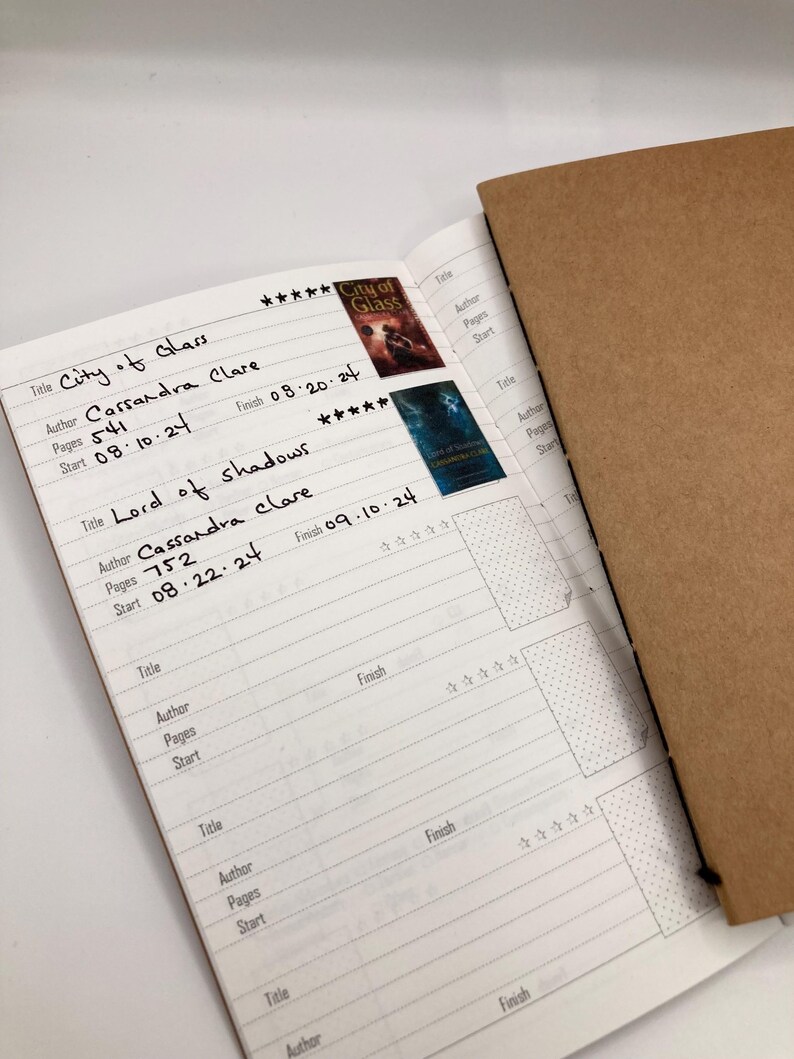 ★★★★★
City of Glass
CASSANDRA CLARE
Title City of Glass
Author Cassandra Clare
Pages 541
Start 08.10.24 Finish 08.20.24
★★★★★
Lord of Shadows
CASSANDRA CLARE
Title Lord of shadows
Author Cassandra Clare
Pages 752
Start 08.22.24 Finish 09.10.24
☆☆☆☆☆
Title
Author
Pages
Start Finish
☆☆☆☆☆
Title
Author
Pages
Start Finish
☆☆☆☆☆
Title
Author
Finish
Title
Author
Pages
Start
Title
Author
Pages
Start
Title